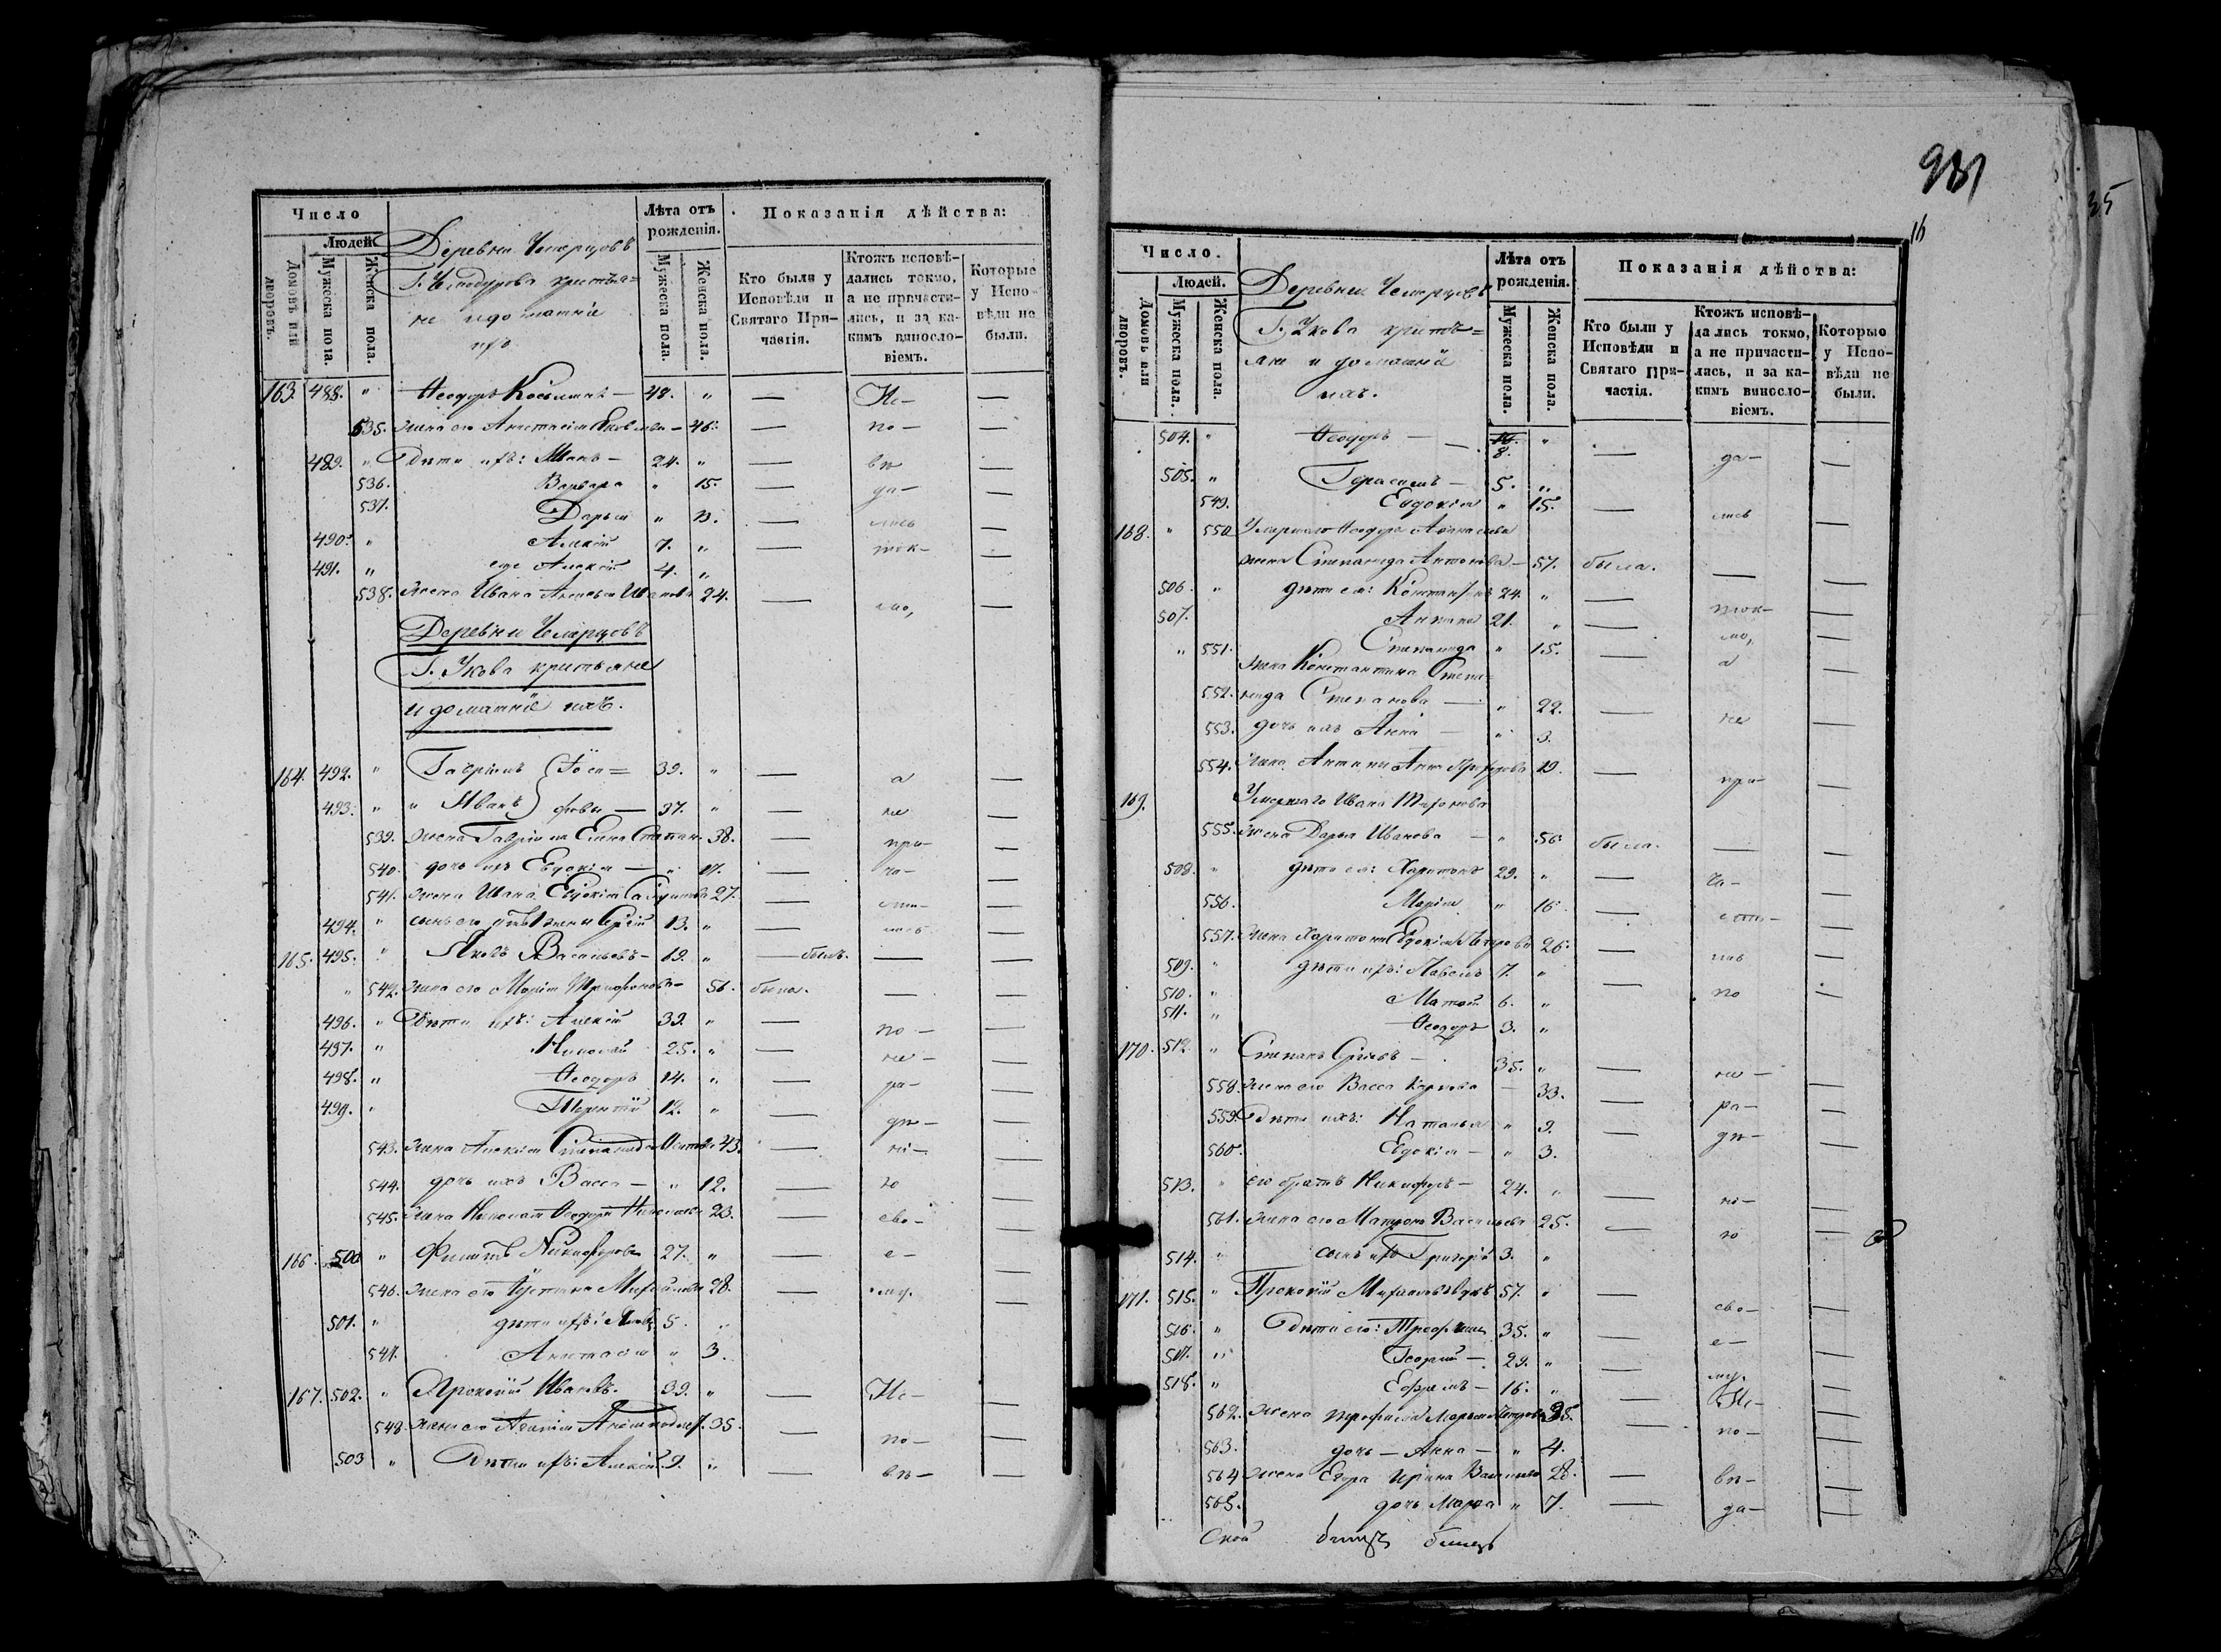 Число
Людей.
Домовъ или дворовъ.
Мужеска пола.
Женска пола.
Деревни Чемерцовъ
крестья=
не и домашніе
ихъ
Лѣта отъ рожденія.
Мужеска пола.
Женска пола.
Показанія дѣйства:
Кто были у Исповѣди и Святаго Причастія.
Ктожъ исповѣдались токмо, а не причастились, и за какимъ винословіемъ.
Которые у Исповѣди не были.
163. 488. " Ѳеодоръ Косьминъ — 48. " — Ис— 
535. жена его Анастасія Яковлева — 46. — по —
489. " Дѣти ихъ: Иванъ — 24. " — вѣ —
536. Варвара " 15. — да— —
537. Дарья " 13. — лись —
490. " Алексій 7. " — ток— —
491. " еще Алексій 4. "
538. жена Ивана Иванова 24. — мо, —
Деревни Чемерцовъ
Г. Укова крестьяне
и домашніе ихъ.
164. 492. " Гавріилъ Іоси= 39. " — а —
493. " " Иванъ фовы — 37. " — не —
539. жена Гавріила Елена Степан. 38. — при— —
540. дочь ихъ Евдокія — " 17. — ча— —
541. жена Ивана Евдокія 27. — сти— —
494. " сынъ его отъ 1 жены Сергій 13. " — лись —
165. 495. " Яковъ Васильевъ — 69. " — былъ. — —
" 542. жена его Марія Трифонова — 56. была. — —
496. " Дѣти ихъ: Алексій 39. " — по — —
497. " Николай 25. " — не — —
498. " Ѳеодоръ 14. " — ра— —
499. " Терентій 12. " — дѣ — —
543. жена Алексія Степанида 43. — ні— —
544. дочь ихъ Васса — " 12. — ю —
545. жена Николая Ѳеодора Николаева 23. — сво— —
166. 500 " Филиппъ Никифоровъ 27. " — е— —
546. жена его Устинья Михайлова 28. — му. —
501. " дѣти ихъ: Яковъ 5. "
547. Анастасія " 3.
167. 502. " Прокопій Ивановъ. 39. " — Ис— —
548. жена его Агафія 35. — по— —
503 " Дѣти ихъ: Алексій 9. " — вѣ— —
931
16
35
Число.
Людей.
Домовъ или дворовъ.
Мужеска пола.
Женска пола.
Деревни Чемерцовъ
Г. Укова кресть=
яне и домашніе
ихъ.
Лѣта отъ рожденія.
Мужеска пола.
Женска пола.
Показанія дѣйства:
Кто были у Исповѣди и Святаго Причастія.
Ктожъ исповѣдались токмо, а не причастились, и за какимъ винословіемъ.
Которые у Исповѣди не были.
504. " Ѳеодоръ — 8. " — да— —
505. " Герасимъ — 5. "
549. Евдокія " 15. — лись —
168. " 550 Умершаго Ѳеодора Аѳанасьева
жена Степанида Антонова — 57. была. — —
506. " дѣти ея: Константинъ 24. " — ток— —
507. Антипа 21. " — мо, —
" 551. Степанида " 15. — а —
жена Константина Степа=
552. нида Степанова — " 22. — не —
553. дочь ихъ Анна — " 3.
554. жена Антипы Анна 19. — при— —
169. Умершаго Ивана Трифонова
555. жена Дарья Иванова — " 56. была. — —
508. " дѣти ея: Харитонъ 29. " — ча— —
556. Марія " 16. — сти— —
557. жена Харитона Евдокія Петрова 26. — лись —
509. " дѣти ихъ: Павелъ 7. " — по —
510. " Матѳей 6. "
511. " Ѳеодоръ 3. "
170. 512 " Степанъ Сергѣевъ — 35. " — не — —
558. жена его Васса Карпова — 33. — ра— —
559. Дѣти ихъ: Наталья " 9. — дѣ— —
560. Евдокія — " 3.
513. " его братъ Никифоръ — 24. " — ні— —
561. жена его Матрона Васильева 25. — ю —
514. " сынъ ихъ Григорій 3. "
171. 515. " Прокопій Михайловъ вдовъ 57. " — сво— —
516. " Дѣти его: Трофимъ 35. " — е— —
517. " Георгій — 29. " — му. —
518. " Ефремъ — 16. " — Ис— —
562. жена Трофима Марья Петрова 38. — по— —
563. дочь — Анна — " 4.
564 жена Егора Ирина Васильева 28. — вѣ— —
565. дочь Марѳа " 7. — да— —